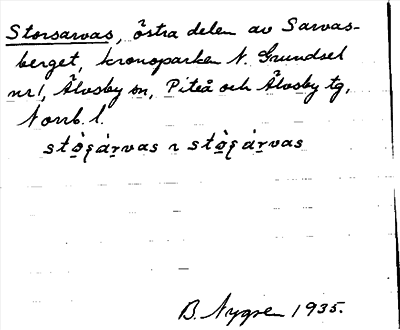 Storsarvas, östra delen av Sarvas-
berget, kronoparken N. Grundsel
nr 1, Älvsby sn, Piteå och Älvsby tg,
Norrb. l.
B. Nygren 1935.